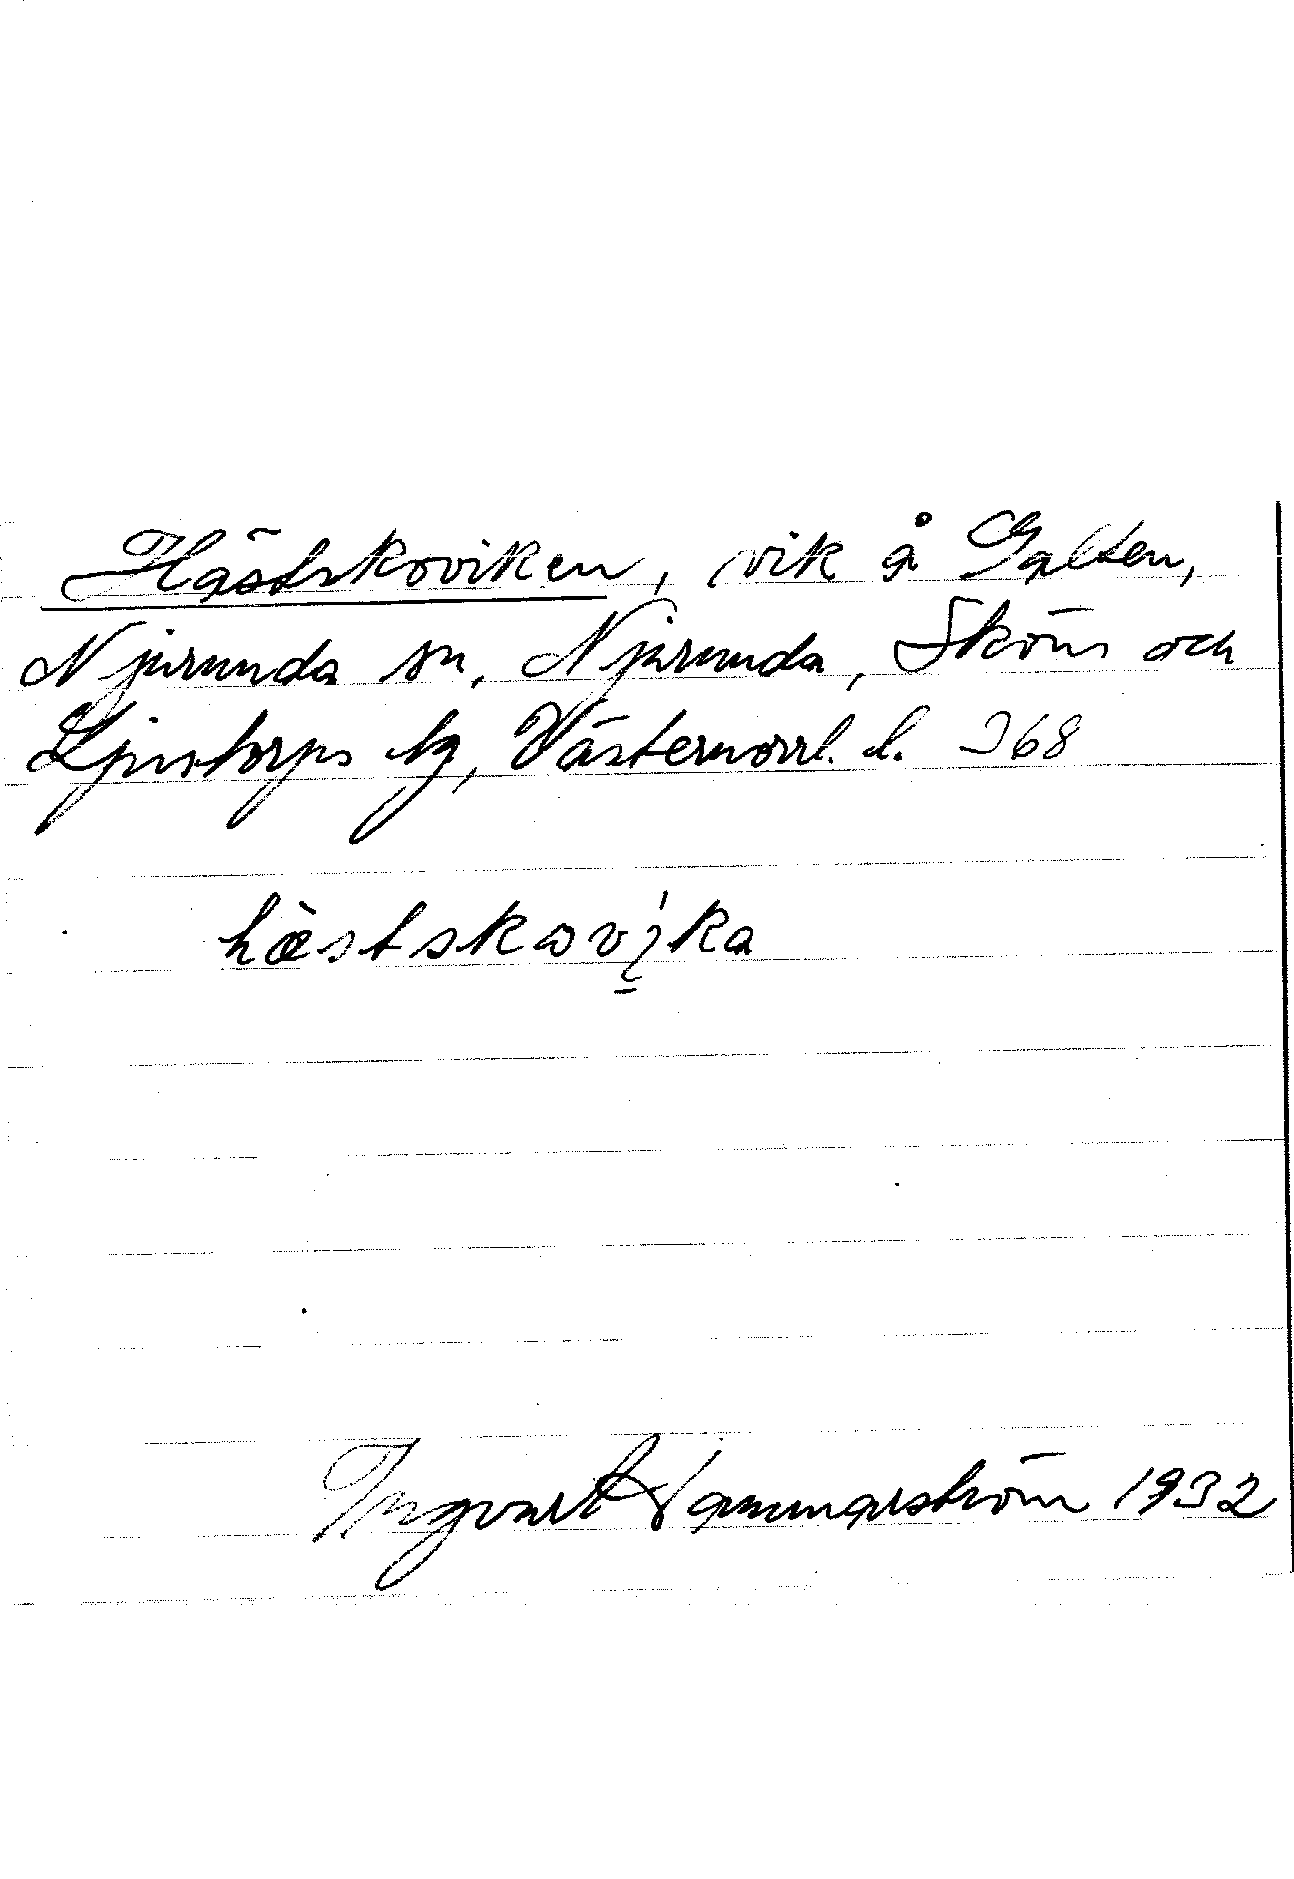 Hästskoviken, vik å Galten,
Njurunda sn, Njurunda, Sköns och
Ljustorps tg, Västernorrl. l. 368
hæ̀stskωvı́ka
Ingvart Hammarström 1932